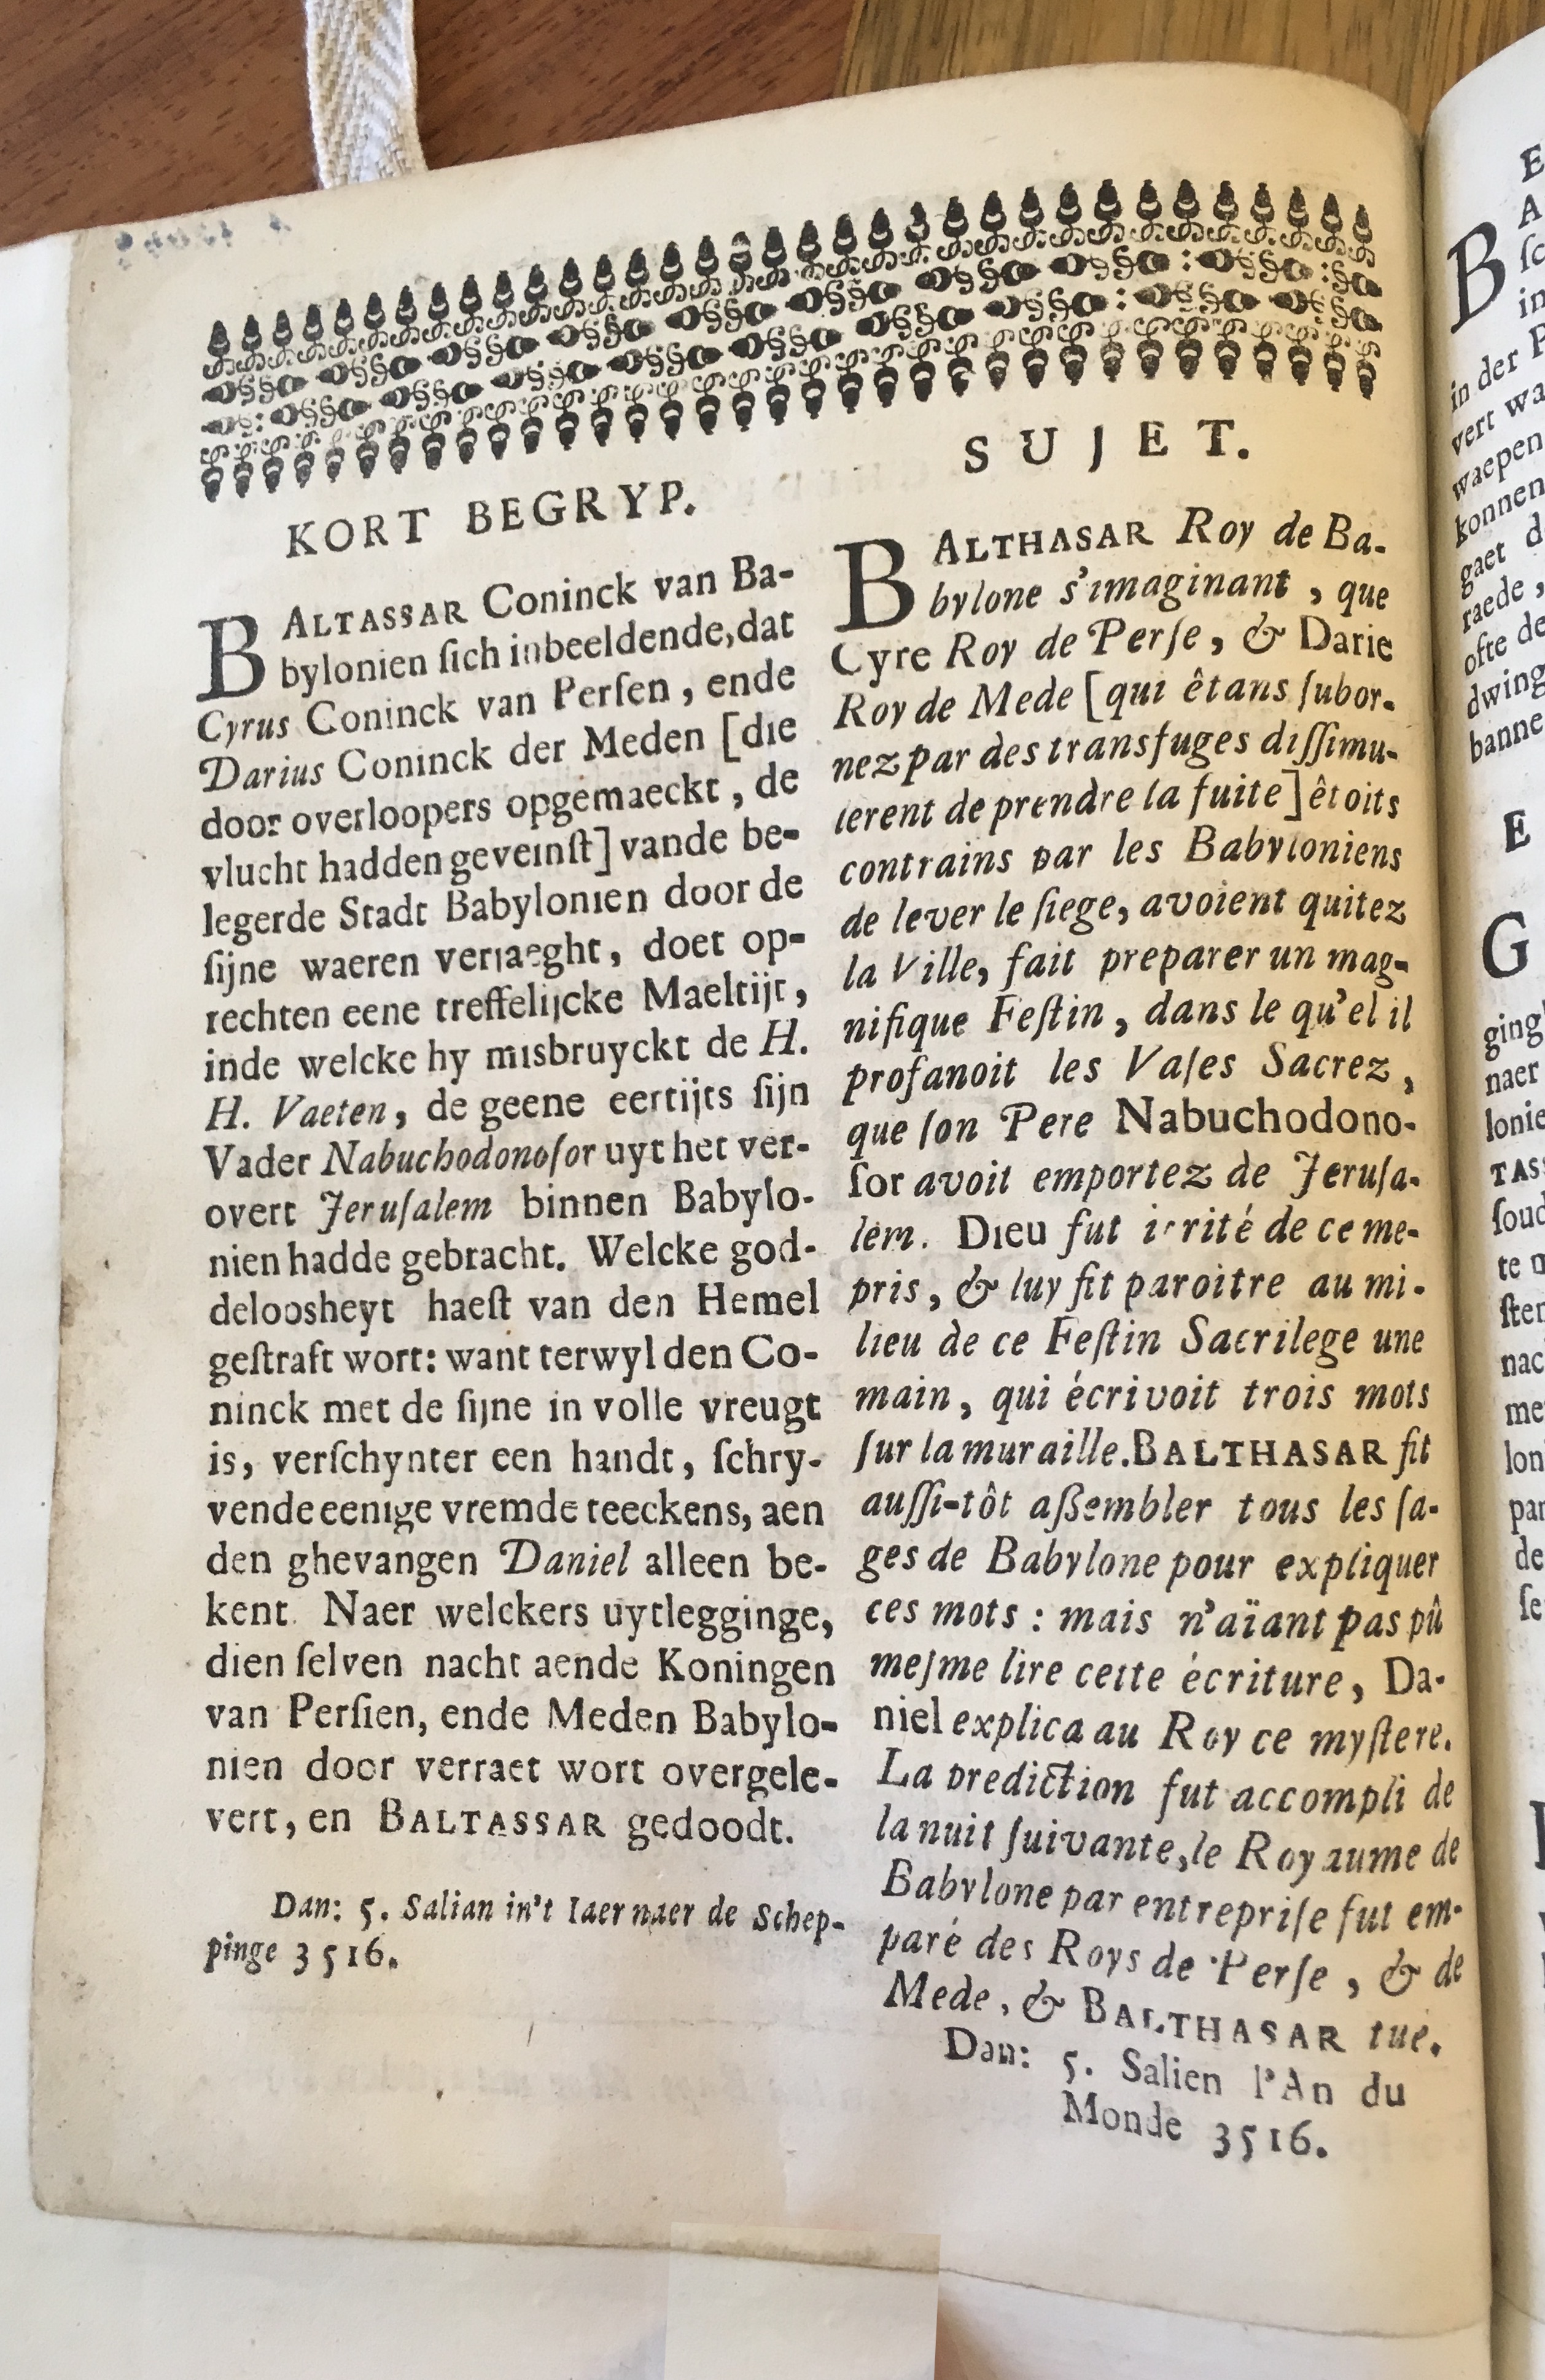 KORT BEGRYP.
BALTASSAR Coninck van Ba-
bylonien ſich inbeeldende, dat
Cyrus Coninck van Perſen, ende
Darius Coninck der Meden [die
door overloopers opgemaeckt, de
vlucht hadden geveinſt] vande be-
legerde Stadt Babylonien door de
ſijne waeren verjaeght, doet op-
rechten eene treffelijcke Maeltijt,
inde welcke hy misbruyckt de H.
H. Vaeten, de geene eertijts ſijn
Vader Nabuchodonoſor uyt het ver-
overt Jeruſalem binnen Babylo-
nien hadde gebracht. Welcke god-
deloosheyt haeſt van den Hemel
geſtraft wort: want terwyl den Co-
ninck met de ſijne in volle vreugt
is, verſchynter een handt, ſchry-
vende eenige vremde teeckens, aen
den ghevangen Daniel alleen be-
kent. Naer welckers uytlegginge,
dien ſelven nacht aende Koningen
van Perſien, ende Meden Babylo-
nien door verraet wort overgele-
vert, en BALTASSAR gedoodt.
Dan: 5. Salian in't Iaer naer de Schep-
pinge 3516.
SUJET.
BALTHASAR Roy de Ba-
bylone s'imaginant, que
Cyre Roy de Perſe, & Darie
Roy de Mede [qui êtans ſubor-
nez par des transfuges diſſimu-
lerent de prendre la fuite] êtoits
contrains par les Babyloniens
de lever le ſiege, avoient quitez
la Ville, fait preparer un mag-
nifique Feſtin, dans le qu'el il
profanoit les Vaſes Sacrez,
que ſon Pere Nabuchodono-
ſor avoit emportez de Jeruſa-
lem. Dieu fut irrité de ce me-
pris, & luy fit paroitre au mi-
lieu de ce Feſtin Sacrilege une
main, qui écrivoit trois mots
ſur la muraille. BALTHASAR fit
auſſi-tôt aßembler tous les ſa-
ges de Babylone pour expliquer
ces mots : mais n'aïant pas pû
meſme lire cette écriture, Da-
niel explica au Roy ce myſtere.
La prediction fut accompli de
la nuit ſuivante, le Royaume de
Babylone par entrepriſe fut em-
paré des Roys de Perſe, & de
Mede, & BALTHASAR tué.
Dan: 5. Salien l'An du
Monde 3516.